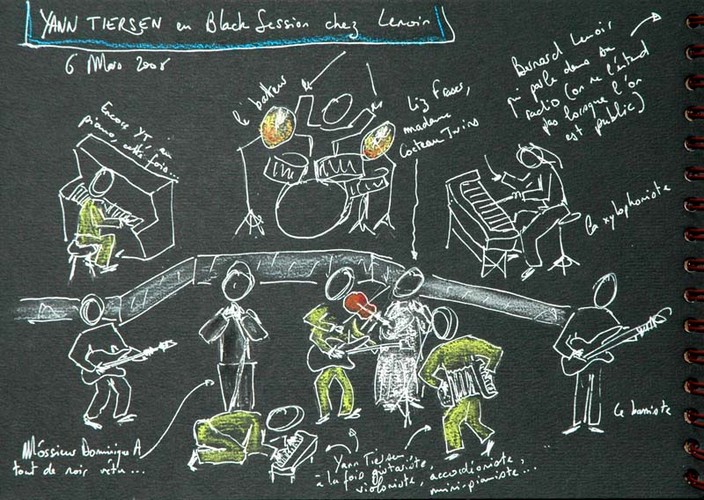 YANN TIERSEN en Black Session chez Lenoir
6 Mars 2008
Bernard Lenoir
qui parle dans sa
radio (on ne l'entend
pas lorsque l'on
est public)
le batteur
Liz Fraser,
madame
Cocteau Twins
Encore YT au
piano cette fois...
la xylophoniste
le bassiste
Môssieur Dominique A
tout de noir vêtu...
Yann Tiersen
à la fois guitariste,
violoniste, accordéoniste,
mini-pianiste...